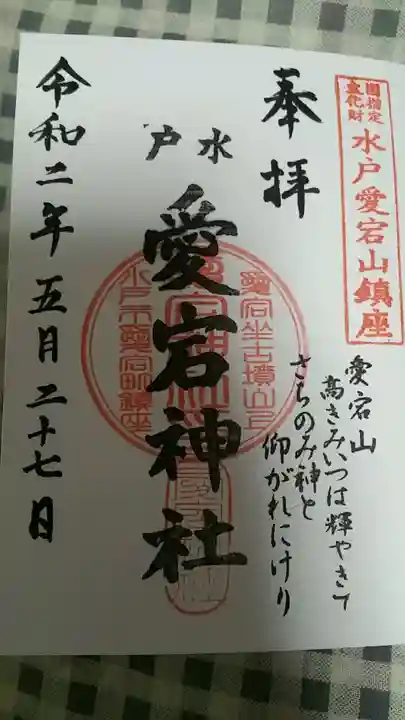 国指定
文化財
水戸愛宕山鎮座
奉拝
愛宕山
高きみいつは輝やきて
さちのみ神と
仰がれにけり
水戸
愛宕神社
愛宕坐古墳山上
水戸市愛宕町鎮座
令和二年五月二十七日